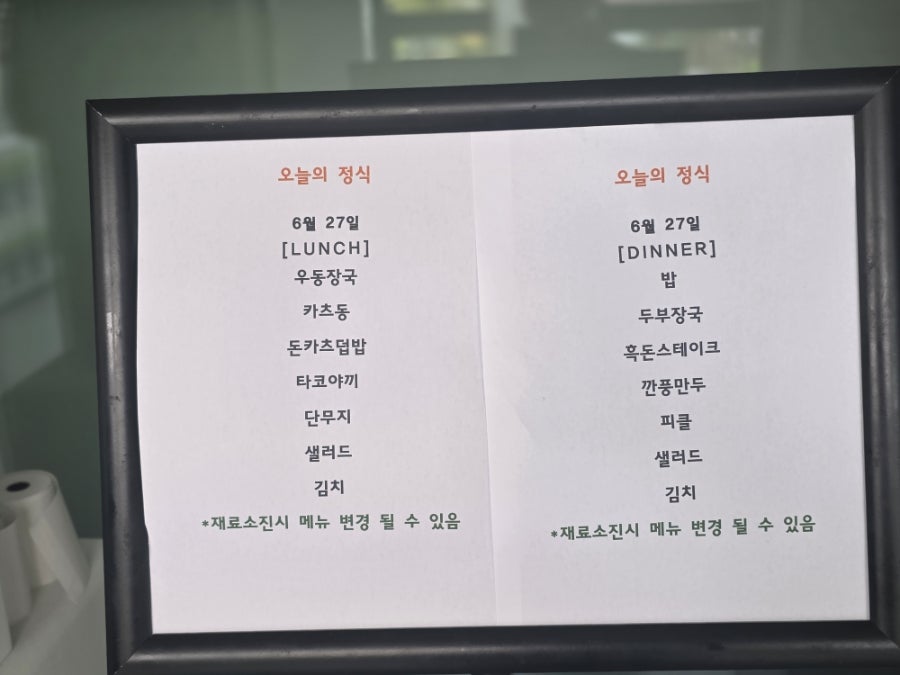 오늘의 정식
6월 27일
[LUNCH]
우동장국
카츠동
돈카츠덥밥
타코야끼
단무지
샐러드
김치
*재료소진시 메뉴 변경 될 수 있음
오늘의 정식
6월 27일
[DINNER]
밥
두부장국
흑돈스테이크
깐풍만두
피클
샐러드
김치
*재료소진시 메뉴 변경 될 수 있음